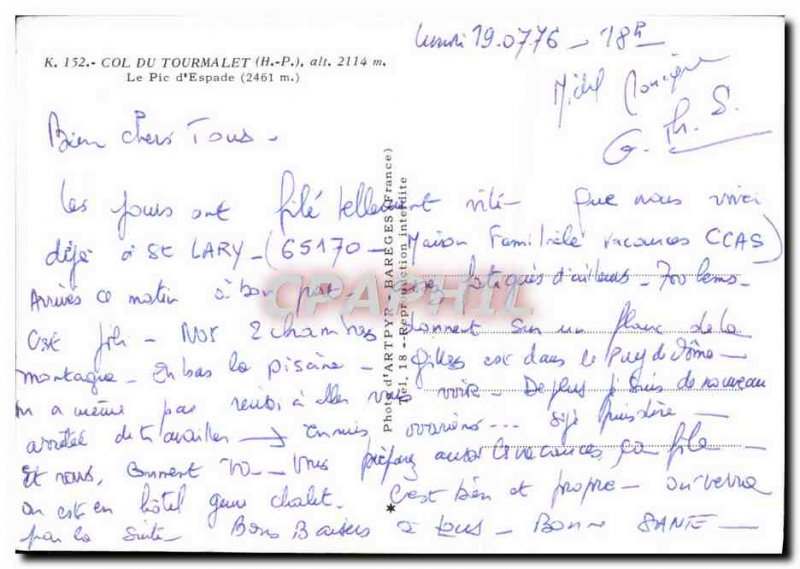 lundi 19.07.76 - 18h
K. 152.- COL DU TOURMALET (H.-P.), alt. 2114 m.
Le Pic d'Espade (2461 m.)
Michel Monique
G. Th. S.
Bien chers Tous -
Les jours ont filé tellement vite - que nous voici
déjà à St LARY - (65170 - Maison Familiale vacances CCAS)
Arrivés ce matin à bon port fatigués d'ailleurs - 700 kms -
C'est joli - Nos 2 chambres donnent sur un flanc de la
montagne - En bas la piscine - Gilles est dans le Puy de Dôme -
on a même pas réussi à aller voir - De plus j'suis de nouveau
arrêtée de travailler - → Ennuis ovariens...
Et vous, comment va - Vous préparez aussi les vacances ça file -
on est en hôtel genre chalet. C'est bien et propre - on verra
par la suite - Bons Baisers à tous - Bonne SANTE -
Photo d'ART PYR. BAREGES (France)
Tél. 18 -- Reproduction interdite
CPAPHIL